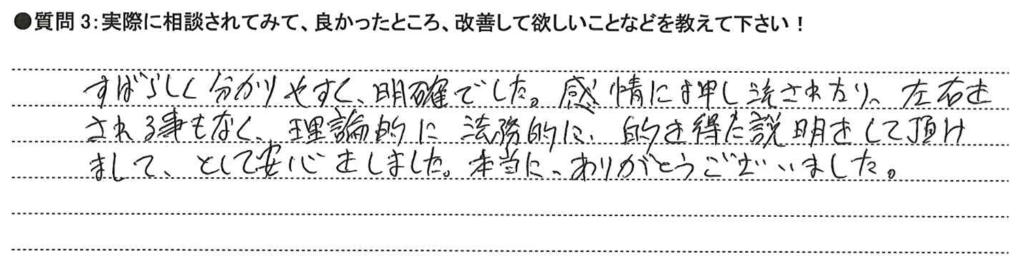 ●質問3:実際に相談されてみて、良かったところ、改善して欲しいことなどを教えて下さい!
すばらしく分かりやすく、明確でした。感情に押し流されたり、左右を
される事もなく、理論的に法務的に、的を得た説明をして頂け
まして、として安心をしました。本当に、ありがとうございました。